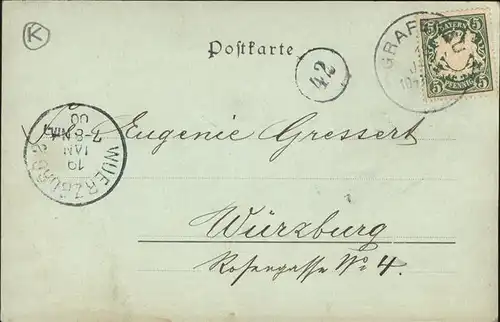 K
Postkarte
42
GRAF
BAYERN
5 5
PFENNIG
5 5
WUERZBURG 2
19
JAN
7-8 NM
00
Eugenie Gressert
Würzburg
Rosengasse No 4.